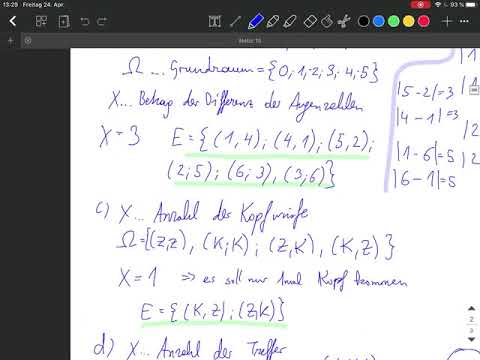 13:29 Freitag 24. Apr.
93 %
Ω ... Grundraum = {0; 1; 2; 3; 4; 5}
X... Betrag der Differenz der Augenzahlen
X = 3 E = {(1,4); (4,1); (5,2);
(2;5); (6;3), (3;6)}
|5-2|=3
|4-1|=3
|1-6|=5
|6-1|=5
c) X... Anzahl der Kopfwürfe
Ω={(Z,Z), (K;K); (Z,K), (K,Z)}
X=1 => es soll nur 1mal Kopf kommen
E = {(K,Z); (Z;K)}
d) X... Anzahl der Treffer
2
3